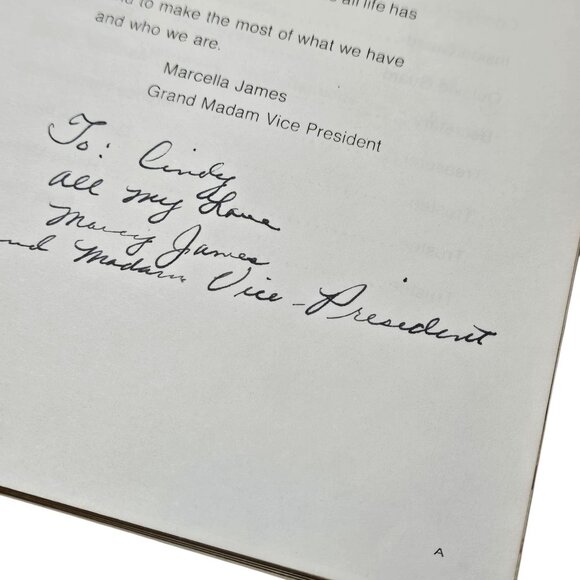 all life has
to make the most of what we have
and who we are.
Marcella James
Grand Madam Vice President
To: Cindy
all my love
Marcy James
Madam Vice-President
A